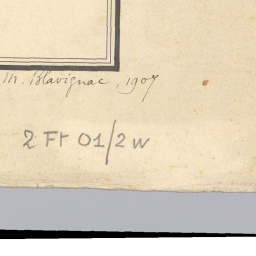 M. Blavignac, 1907
2 Fr 01/2 w